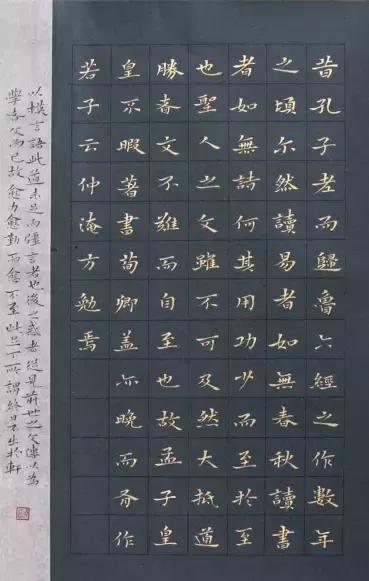 昔孔子老而歸魯六經之作數年
之頃尔然讀易者如無春秋讀書
者如無詩何其用功少而至於至
也聖人之文雖不可及然大抵道
勝者文不難而自至也故孟子皇
皇不暇著書荀卿盖亦晚而有作
若子云仲淹方勉焉
以模言語此道未足而彊言者也後之惑者徒見前世之文傳以為
學者文而已故愈力愈勤而愈不至此足下所謂終日不出於軒